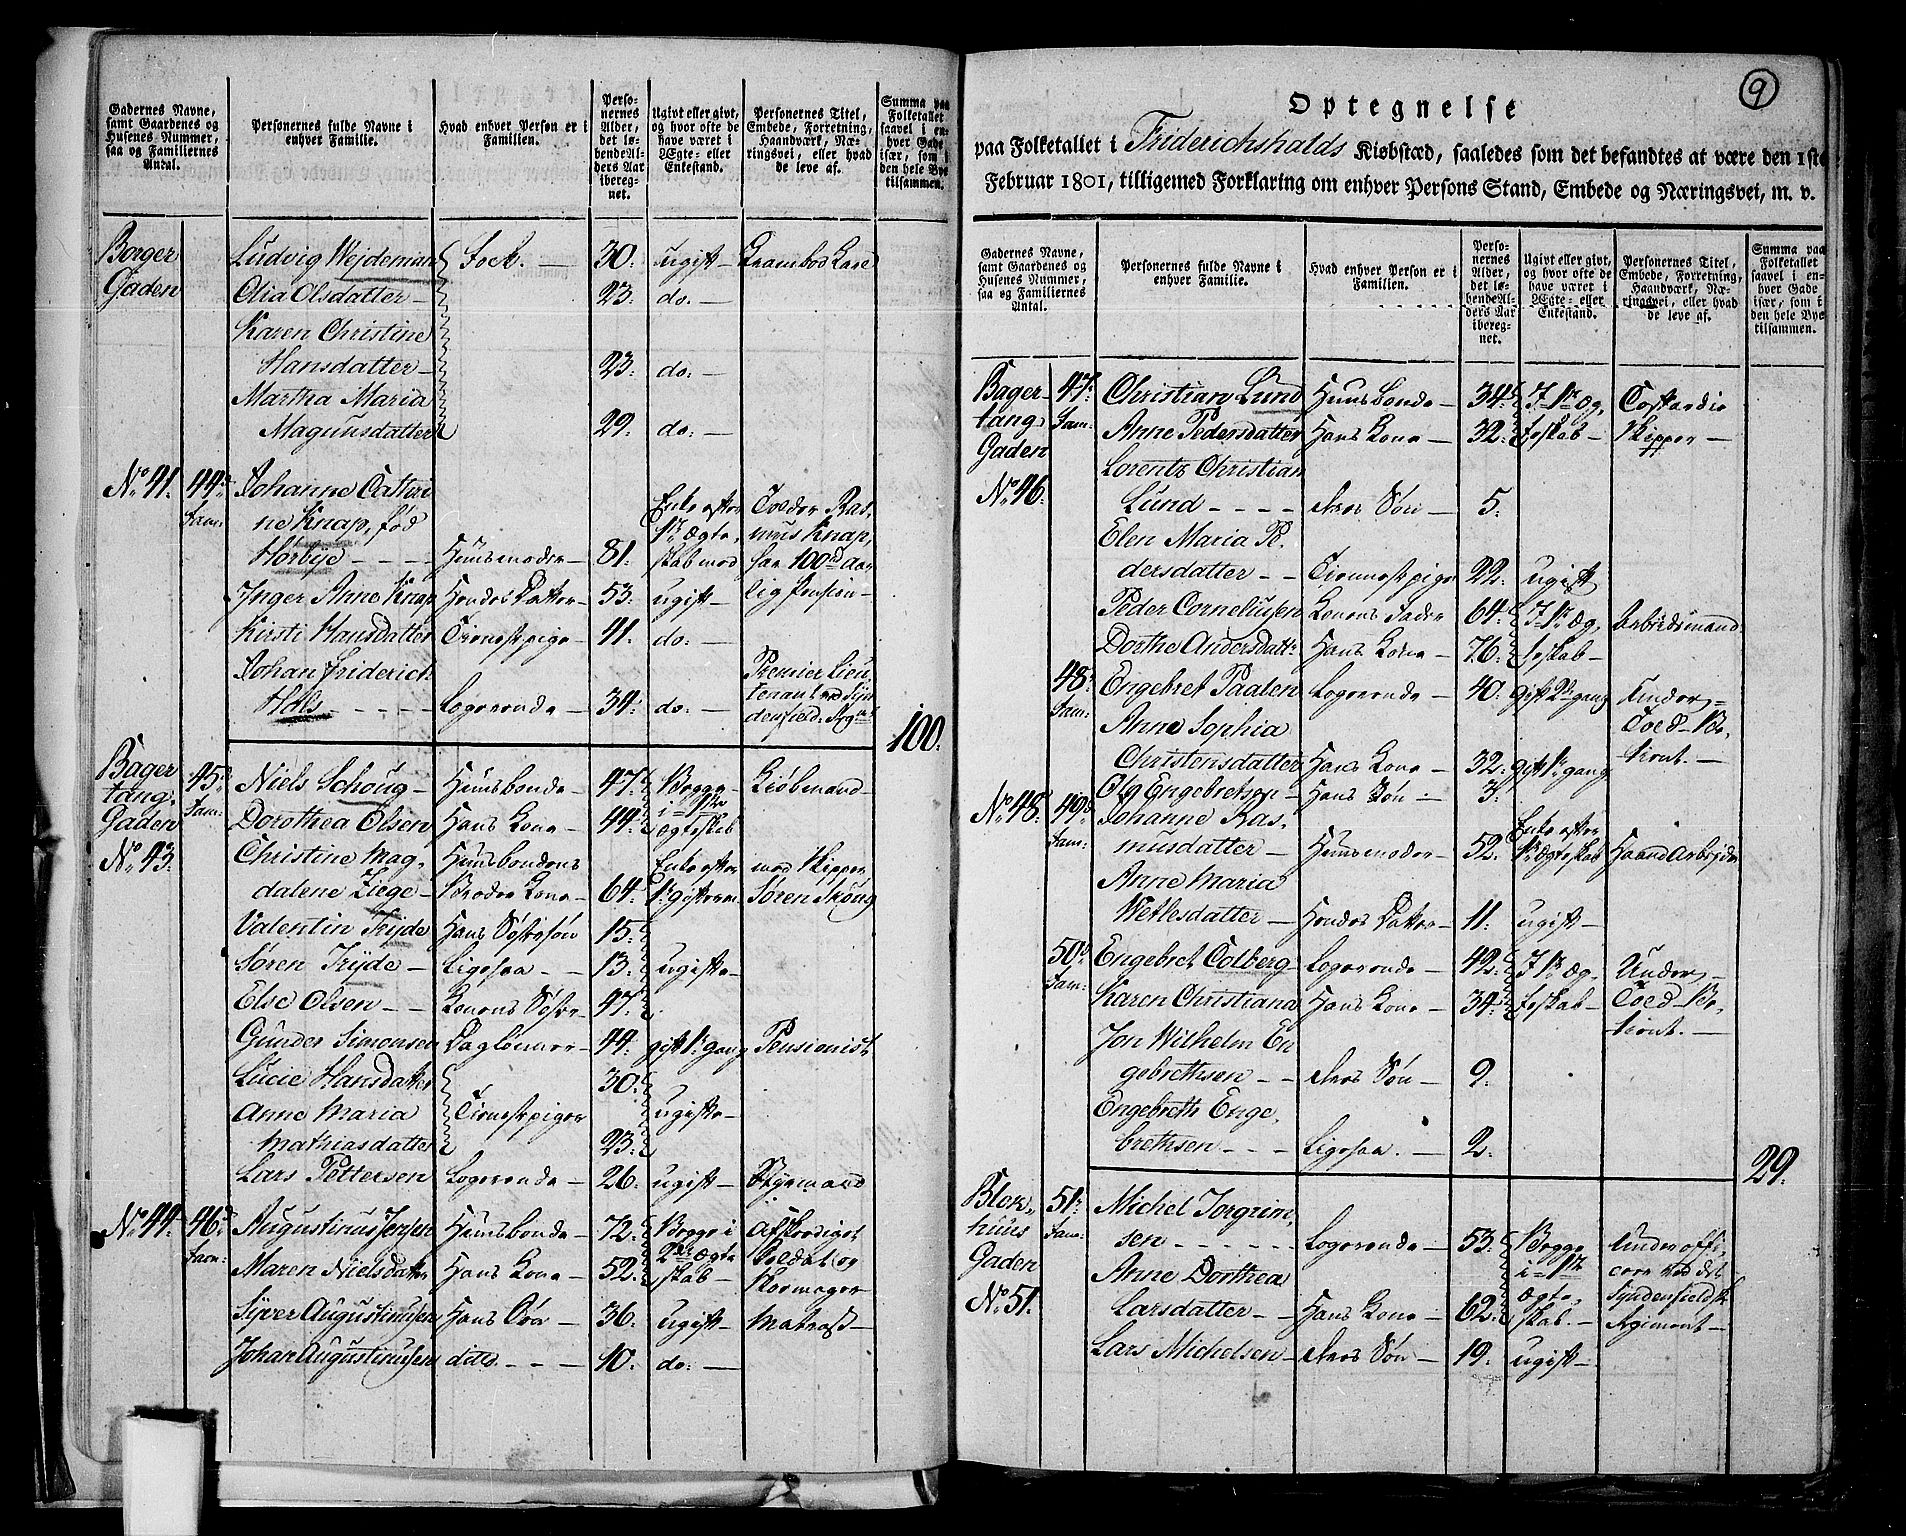 Gadernes Navne, samt Gaardenes og Husenes Nummer, saa og Familiernes Antal.
Personernes fulde Navne i enhver Familie.
Hvad enhver Person er i Familien.
Personernes Alder, det løbende Alders Aar iberegnet.
Ugivt eller givt, og hvor ofte de have været i Ægte- eller Enkestand.
Personernes Titel, Embede, Forretning, Haandværk, Næringsvei, eller hvad de leve af.
Summa paa Folketallet saavel i enhver Gade især, som i den hele Bye tilsammen.
Borger Gaden Ludvig Wejdeman 30. ugift
Olia Olsdatter 23. do.
Karen Christine
Hansdatter 23. do.
Martha Maria
Magnusdatter 29. do.
No. 41. 44 Fam: Johanne Cathri Enke efter Toldor Ras,
ne Knap, fød 1ste Ægte, mus Knap,
Hørbÿe Huusmoder 81. skab med har 100 rd aar
Inger Anne Knap Hendes Datter 53. ugift lig Pension
Kirsti Hansdatter Tienestpige 41. do.
Johan Friderich Premier Lieu
Hals Logerende 34. do. tenant ved Syn
denfield: Rgmt 100.
Bager tang. Gaden 45 Fam: Niels Schoug Huusbonde 47. Begge Kiøbmand
Dorothea Olsen Hans Kone 44. i 1ste ægteskab
No. 43. Christine Mag, Huusbondens Enke efter med Skipper
dalene Ziege Broder Kone 64. Søren Skoug
Valentin Trÿde Hans Søstersøn 15.
Søren Trÿde Ligesaa 13. ugifte
Else Olsen Konens Søster 47.
Gunder Simonsen Dagleinner 44. gift 1 gang Pensionist
Lucie Hansdatter 30.
Anne Maria Tienestpiger ugifte
Mathiasdatter 23.
Lars Pettersen Logerende 26. ugift Styrmand
No. 44. 46 Fam: Augustinus Jensen Huusbonde 72. Begge i afskediget
Maren Nielsdatter Hans Kone 52. 2det Ægte skab Soldat og Skomager
Siver Augustinusen Hans Søn 36. ugift Matros
Johan Augustinusen dito 10. do.
9
Optegnelse
paa Folketallet i Friderichshalds Kiøbstæd, saaledes som det befandtes at være den 1ste
Februar 1801, tilligemed Forklaring om enhver Persons Stand, Embede og Næringsvei, m. v.
Gadernes Navne, samt Gaardenes og Husenes Nummer, saa og Familiernes Antal.
Personernes fulde Navne i enhver Familie.
Hvad enhver Person er i Familien.
Personernes Alder, det løbende Alders Aar iberegnet.
Ugivt eller givt, og hvor ofte de have været i Ægte- eller Enkestand.
Personernes Titel, Embede, Forretning, Haandværk, Næringsvei, eller hvad de leve af.
Summa paa Folketallet saavel i enhver Gade især, som i den hele Bye tilsammen.
Bager tang. Gaden 47 Fam: Christian Lund Huusbonde 34. I 1ste Æg, Costardie
Anne Pedersdatter Hans Kone 32. teskab Skipper
No. 46. Lorentz Christian
Lund deres Søn 5.
Elen Maria Pe,
dersdatter Tienestpige 22. ugift
Peder Corneliusen Konens Fader 64. I 1ste Æg, Arbeidsmand
Dorthe Andersdatt: Hans Kone 76. teskab
48 Fam: Engebret Paalen Logerende 40. gift 2 gang Under
Anne Sophia Toed Be,
Christensdatter Hans Kone 32. gift 1 gang tient.
Ole Engebretsen Hans Søn 3.
No. 48. 49 Fam: Johanne Ras, Enke efter
musdatter Huusmoder 52. 1 Ægteskab Haand Arbeyde
Anne Maria
Wetlesdatter Hendes Datter 11. ugift
50 Fam: Engebret Colberg Logerende 42. I 1ste Æg, Under
Karen Christiana Hans Kone 34. teskab Toed Be,
Jon Wilhelm En tient.
gebrethsen deres Søn 9.
Engebreth Enge,
brethsen Ligesaa. 2. 29.
Blok, huus Gaden 51 Fam: Michel Jorgrim,
sen Logerende 53. Begge Underoffi,
Anne Dorthea i 1ste ceer ved det
No. 51. Larsdatter Hans Kone 62. Ægte, skab. Syndenfieldsk Rgiment
Lars Michelsen deres Søn 19. ugift